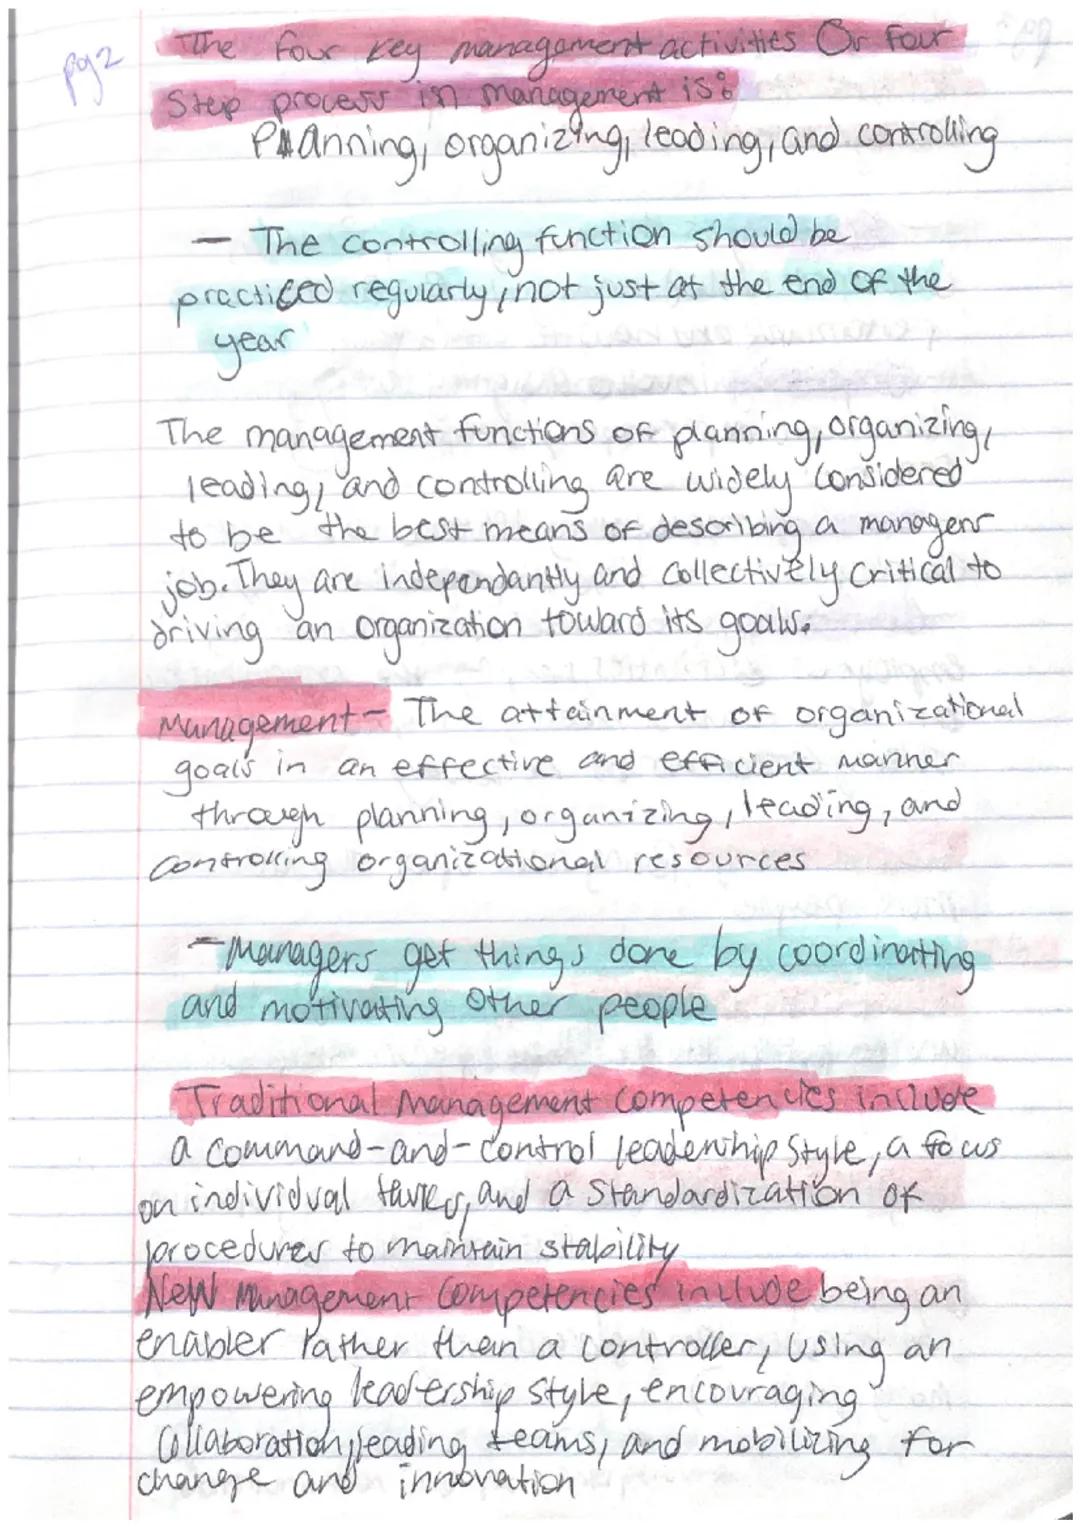 pg2
The four key management activities Or four
Step process in management is:
Planning, organizing, leading, and controlling
- The controlling function should be
practiced regularly, not just at the end of the
year
The management functions of planning, organizing,
leading, and controlling are widely considered
to be the best means of describing a managers
job. They are independantly and collectively critical to
driving an organization toward its goals.
Management - The attainment of organizational
goals in an effective and efficient manner
through planning, organizing, leading, and
controlling organizational resources
- Managers get things done by coordinating
and motivating other people
Traditional Management competencies include
a command-and-control leadership style, a focus
on individual tasks, and a standardization of
procedures to maintain stability
New Management Competencies include being an
enabler rather than a controller, using an
empowering leadership style, encouraging
collaboration, leading teams, and mobilizing for
change and innovation